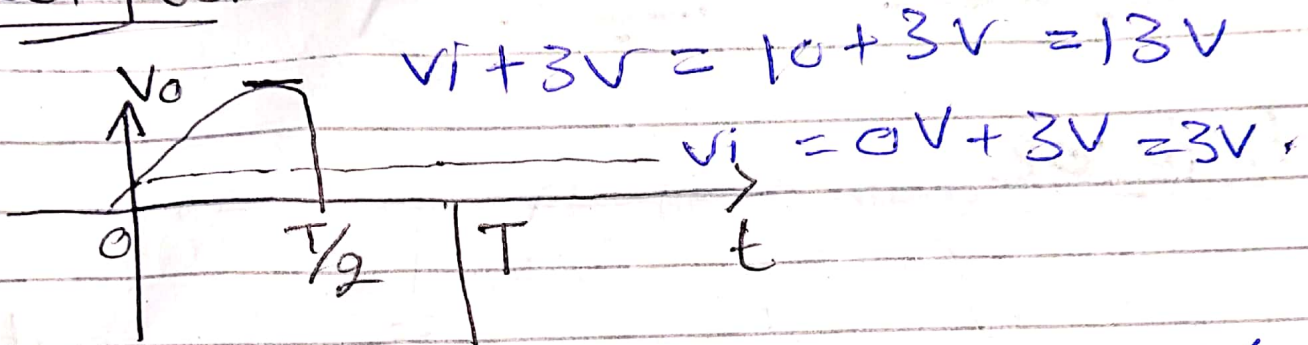 Vo
vi + 3V = 10 + 3V = 13V
vi = 0V + 3V = 3V.
0 T/2 T t